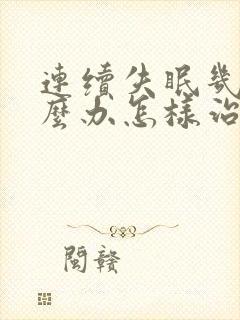 連續失眠幾
麼办怎樣治
閩贛